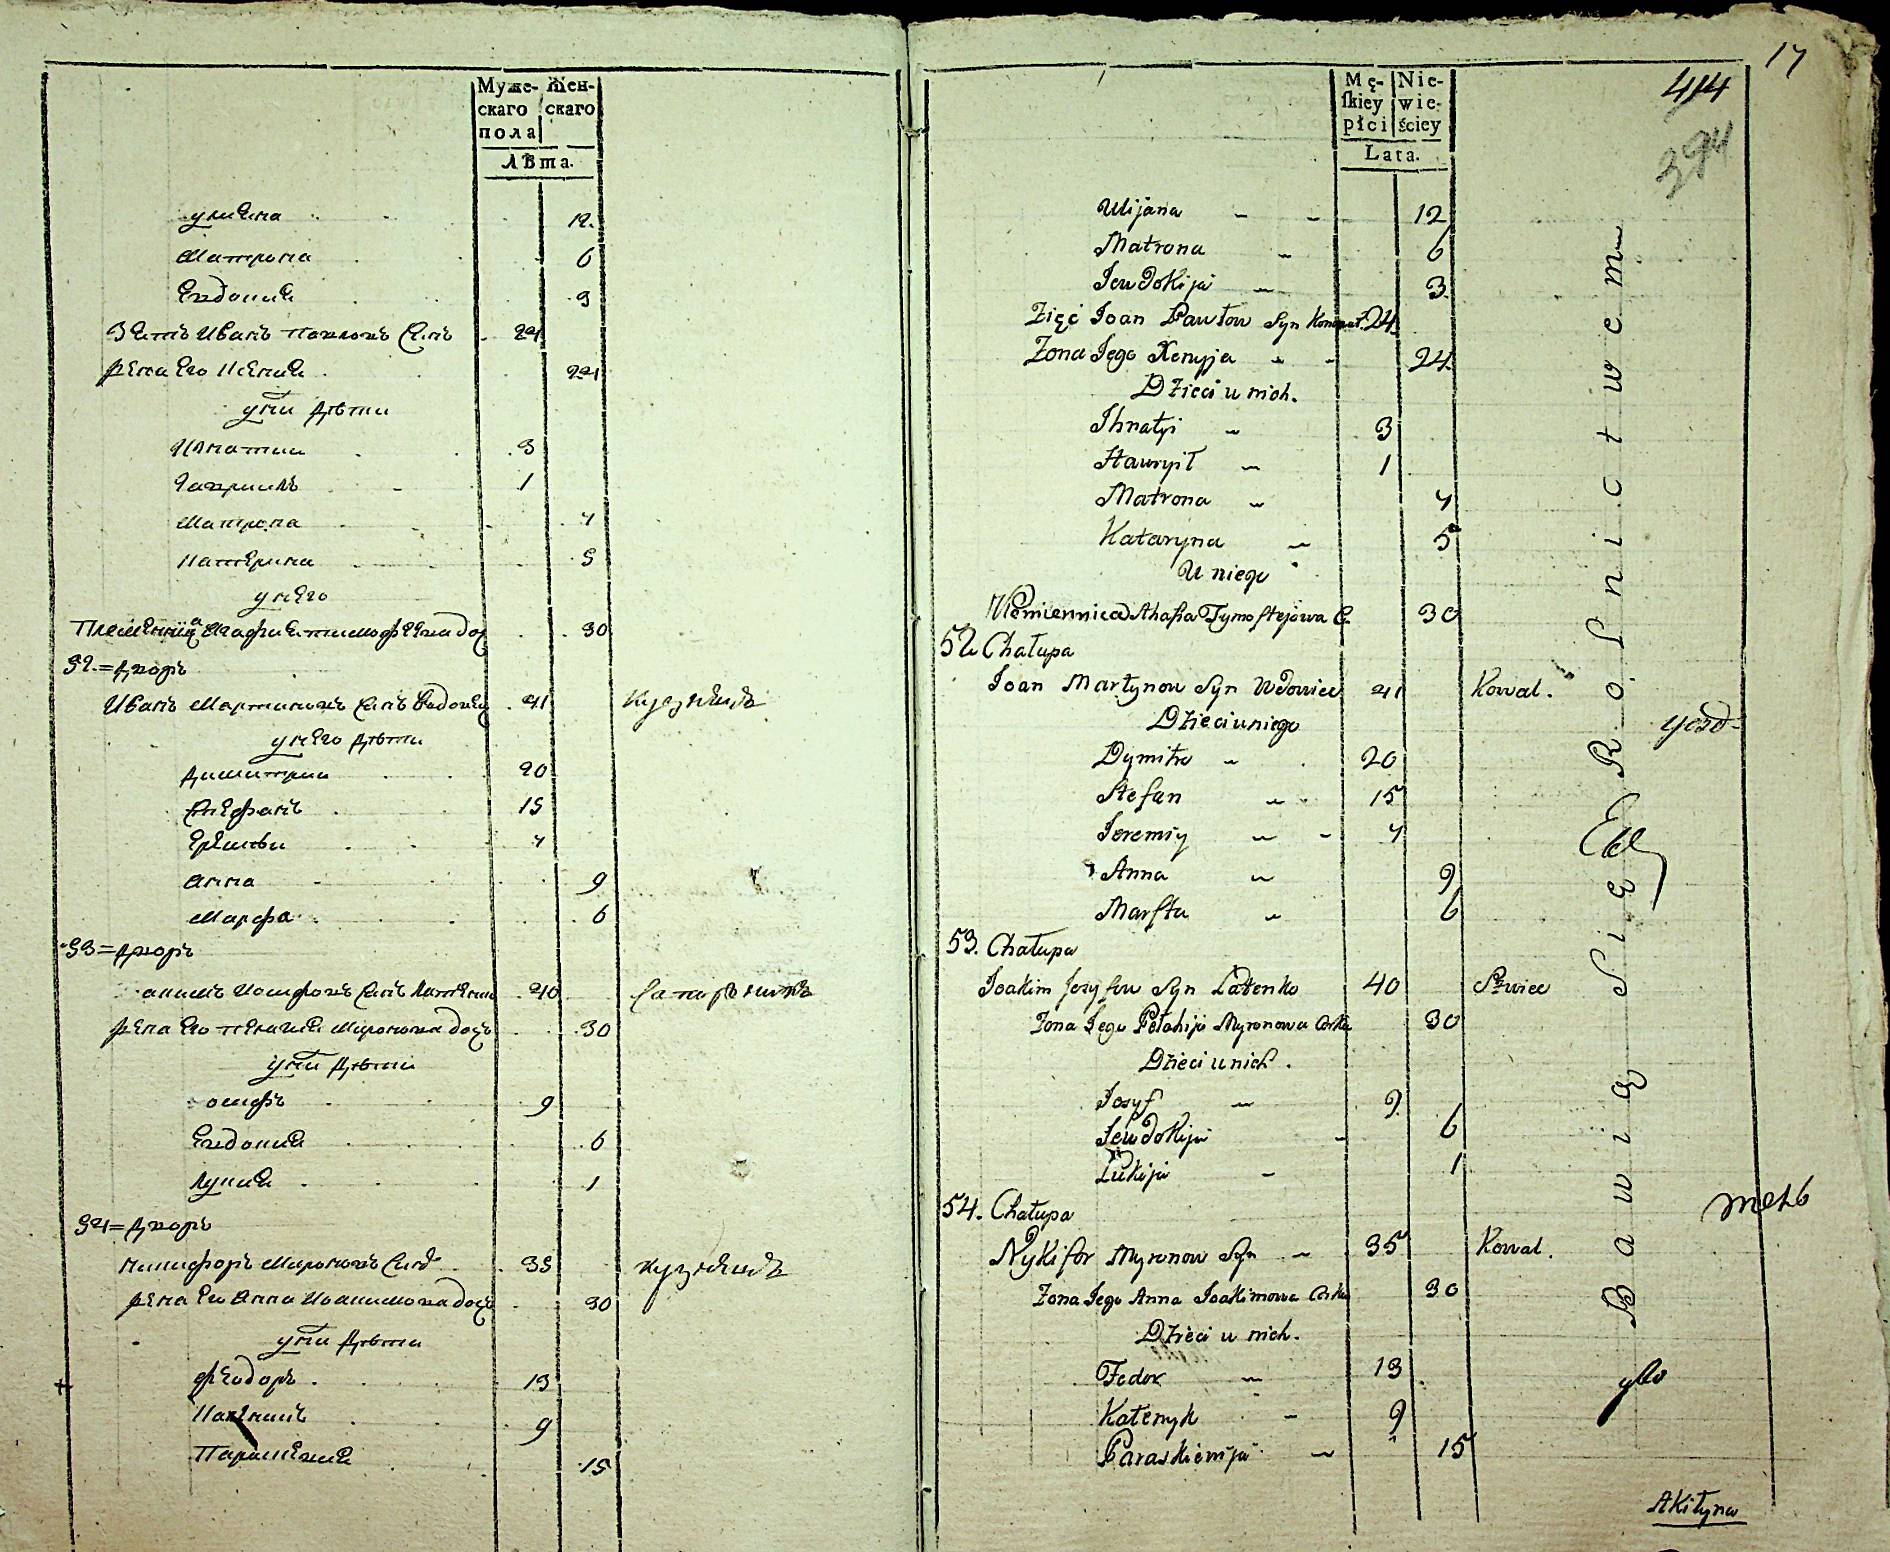 Муже-
скаго
пола
Жен-
скаго
Лѣта.
улиана 12.
Матрона 6
Евдокия 3
Зять Иванъ Павловъ Сынъ 24
жена Его Ксения 24
у них дѣти
Игнатии 3
Гавриилъ 1
Матрона 7
Катерина 5
у него
племянница Агафия Тимофеева доч 30
52.=дворъ
Иванъ Мартиновъ Сынъ вдовец 41 кузнецъ
у него дѣти
Димитрии 20
Стефанъ 15
Еремѣи 7
анна 9
Марфа 6
53=дворъ
акимъ Иосифовъ Сынъ Латенко 40
жена Его пелагия Миронова дочь 30
у них дѣти
осифъ 9
Евдокия 6
Лукия 1
54=дворъ
никифоръ Мироновъ Сынъ 35 кузнецъ
жена Его Анна Иоакимова дочь 30
у них дѣти
феодоръ 13
9
Параскевия 15
17
Mę-
ſkiey
płci
Nie-
wie-
ściey
Lata.
414
394
Ulijana 12
Matrona 6
Jewdokija 3
Zięć Joan Pawłow Syn 24
Zona Jego Xenyja 24
Dzieci u nich.
Ihnatyi 3
Hawryił 1
Matrona 7
Kataryna 5
U niego
Plemiennica Ahafia Tymofiejowa C. 30
52 Chałupa
Joan Martynow Syn Wdowiec 41 Kowal.
Dzieci u niego
Dymitro 20
Stefan 15
Jeremiy 7
Anna 9
Marfta 6
53. Chałupa
Joakim Jozyfow Syn Łatenko 40 Szwiec
Zona Jego Pełahija Myronowa Crka 30
Dzieci u nich.
Jozyf 9
Jewdokija 6
Łukija 1
54. Chałupa
Nykifor Myronow Syn 35 Kowal.
Zona Jego Anna Joakimowa Crka 30
Dzieci u nich.
Fedor 13
Katenyk 9
Paraskiewija 15
Bawią Się Rolnictwem
Akiłyna